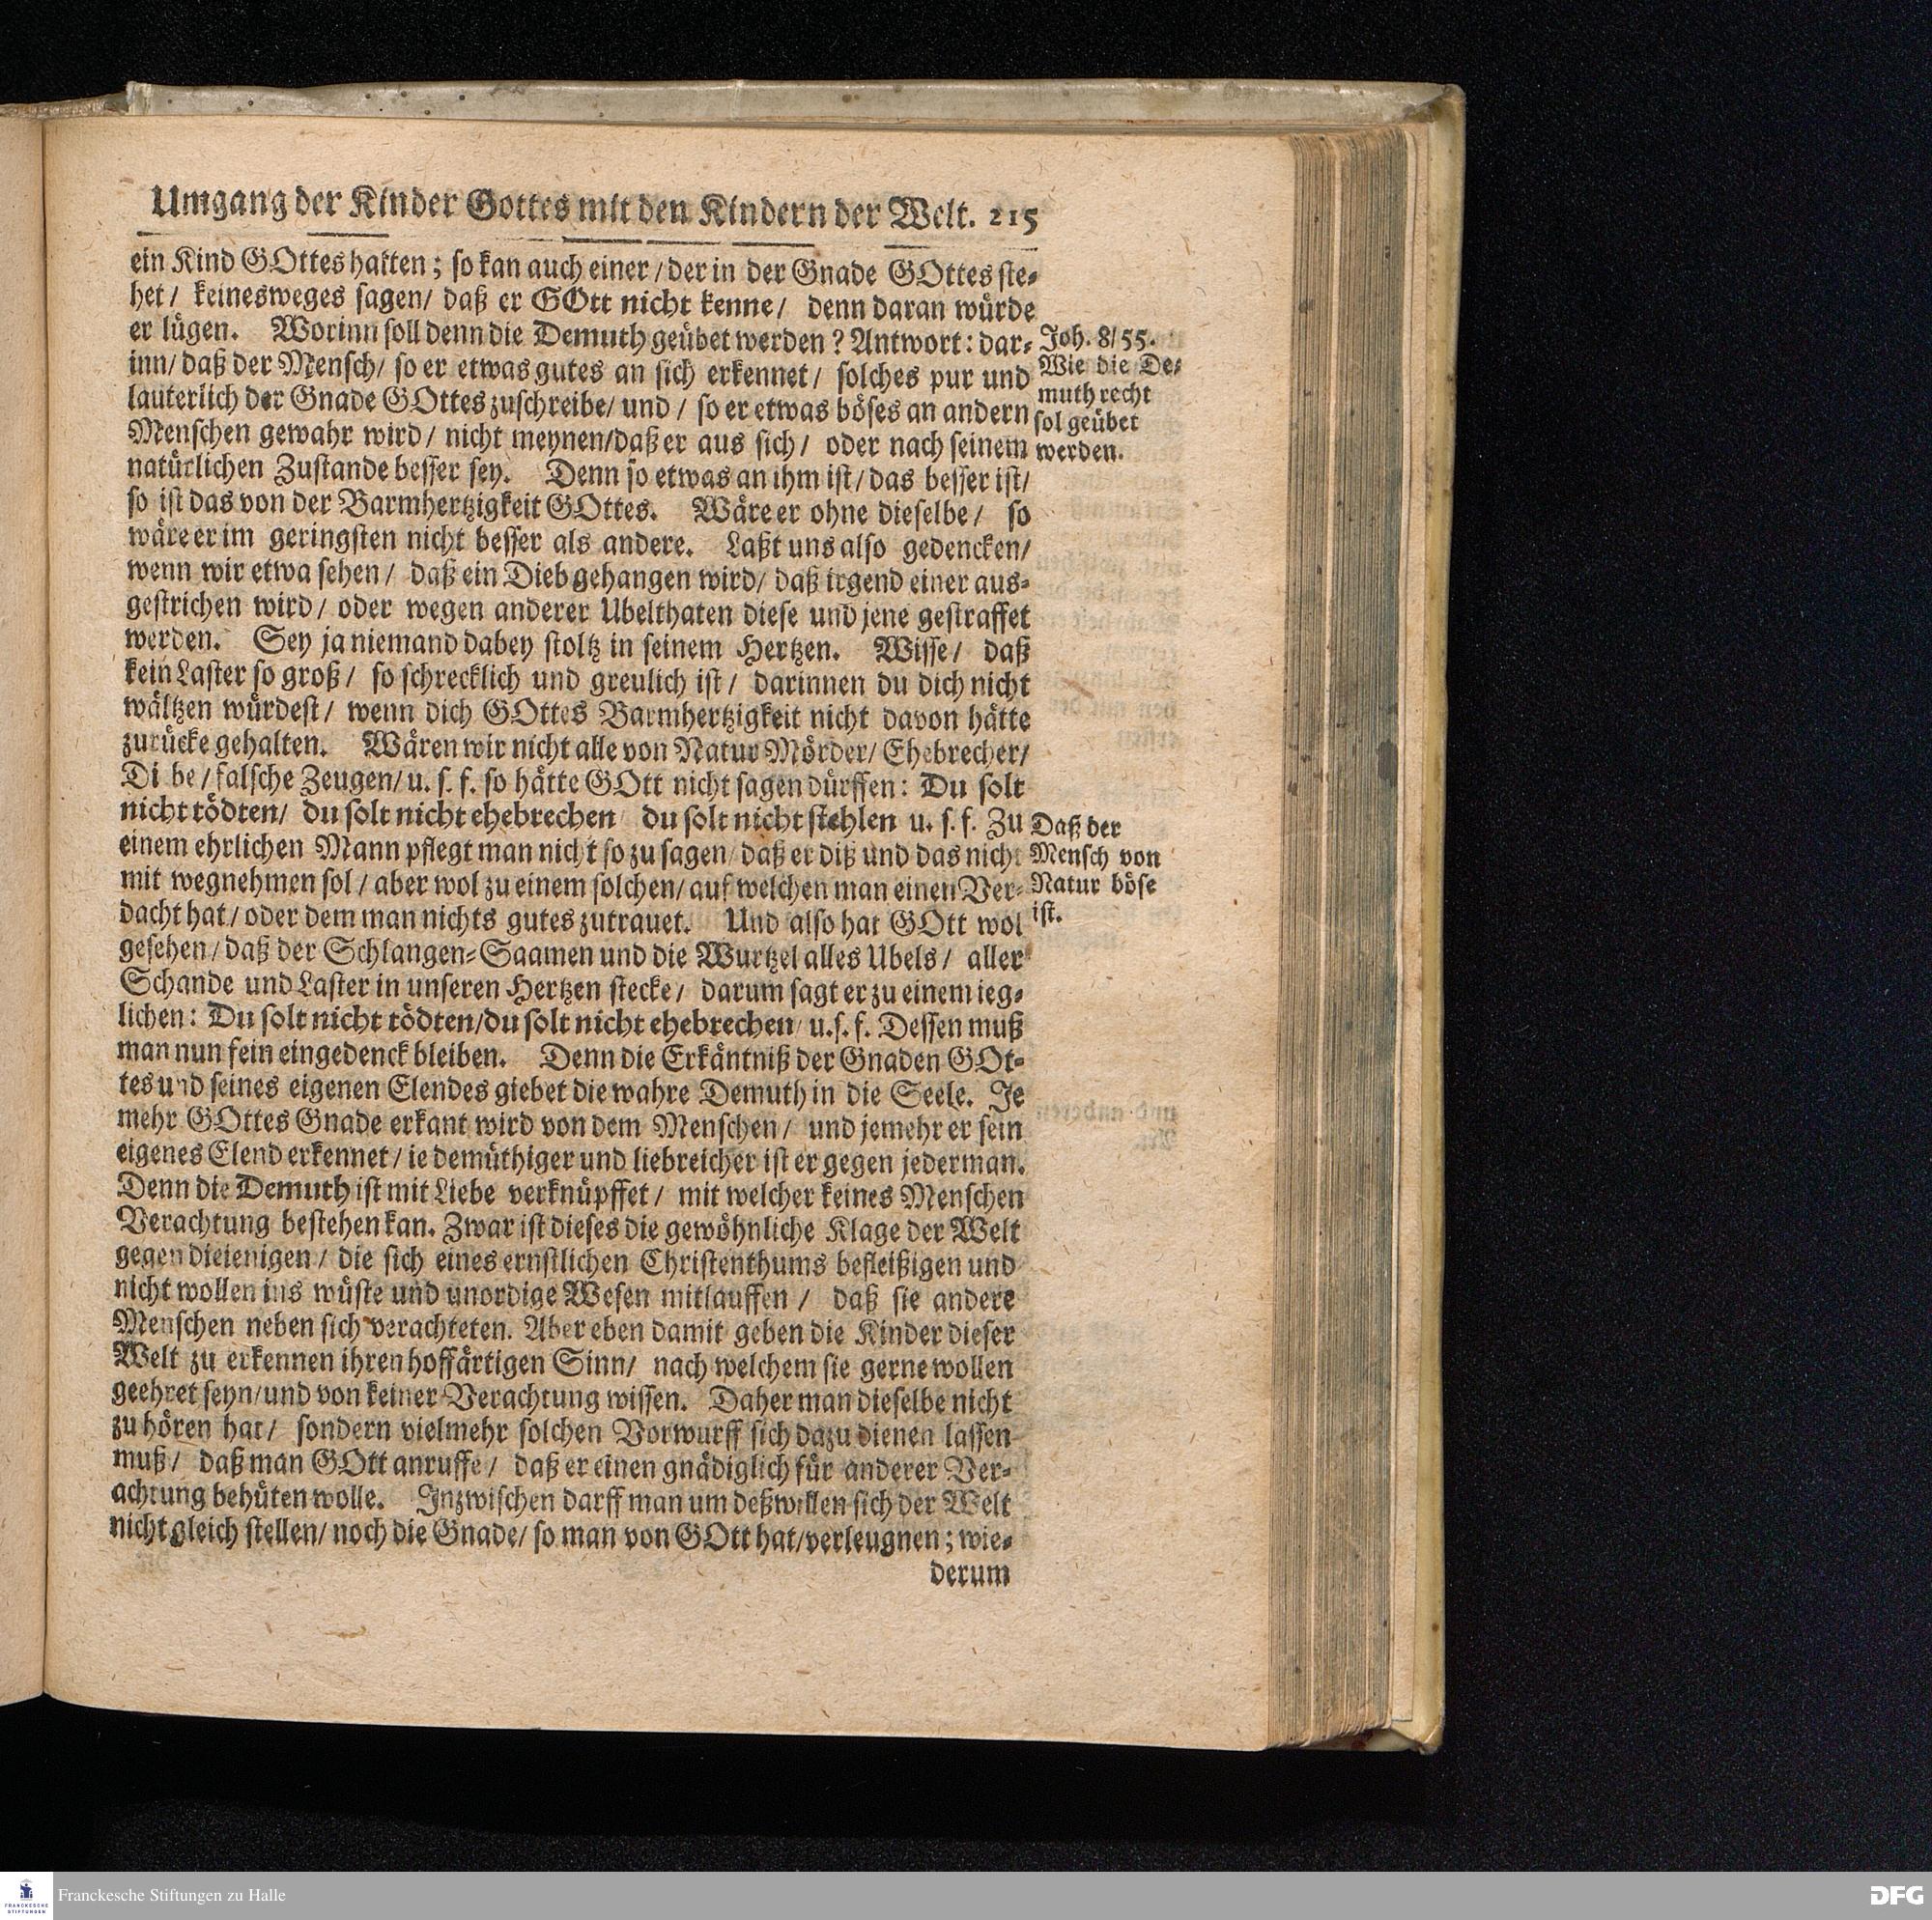 Umgang der Kinder Gottes mit den Kindern der Welt. 215
ein Kind GOttes halten; so kan auch einer/ der in der Gnade GOttes ste-
het/ keinesweges sagen/ daß er GOtt nicht kenne/ denn daran würde
er lügen. Worinn soll denn die Demuth geübet werden? Antwort: dar-
inn/ daß der Mensch/ so er etwas gutes an sich erkennet/ solches pur und
lauterlich der Gnade GOttes zuschreibe/ und/ so er etwas böses an andern
Menschen gewahr wird/ nicht meynen/ daß er aus sich/ oder nach seinem
natürlichen Zustande besser sey. Denn so etwas an ihm ist/ das besser ist/
so ist das von der Barmhertzigkeit GOttes. Wäre er ohne dieselbe/ so
wäre er im geringsten nicht besser als andere. Laßt uns also gedencken/
wenn wir etwa sehen/ daß ein Dieb gehangen wird/ daß irgend einer aus-
gestrichen wird/ oder wegen anderer Ubelthaten diese und jene gestraffet
werden. Sey ja niemand dabey stoltz in seinem Hertzen. Wisse/ daß
kein Laster so groß/ so schrecklich und greulich ist/ darinnen du dich nicht
wältzen würdest/ wenn dich GOttes Barmhertzigkeit nicht davon hätte
zurücke gehalten. Wären wir nicht alle von Natur Mörder/ Ehebrecher/
Di be/ falsche Zeugen/ u. s. f. so hätte GOtt nicht sagen dürffen: Du solt
nicht tödten/ du solt nicht ehebrechen du solt nicht stehlen u. s. f. Zu
einem ehrlichen Mann pflegt man nicht so zu sagen/ daß er diß und das nicht
mit wegnehmen sol/ aber wol zu einem solchen/ auf welchen man einen Ver-
dacht hat/ oder dem man nichts gutes zutrauet. Und also hat GOtt wol
gesehen/ daß der Schlangen-Saamen und die Wurtzel alles Ubels/ aller
Schande und Laster in unseren Hertzen stecke/ darum sagt er zu einem ieg-
lichen: Du solt nicht tödten/ du solt nicht ehebrechen/ u. s. f. Dessen muß
man nun fein eingedenck bleiben. Denn die Erkäntniß der Gnaden GOt-
tes und seines eigenen Elendes giebet die wahre Demuth in die Seele. Je
mehr GOttes Gnade erkant wird von dem Menschen/ und jemehr er sein
eigenes Elend erkennet/ ie demüthiger und liebreicher ist er gegen jederman.
Denn die Demuth ist mit Liebe verknüpffet/ mit welcher keines Menschen
Verachtung bestehen kan. Zwar ist dieses die gewöhnliche Klage der Welt
gegen dieienigen/ die sich eines ernstlichen Christenthums befleißigen und
nicht wollen ins wüste und unordige Wesen mitlauffen/ daß sie andere
Menschen neben sich verachteten. Aber eben damit geben die Kinder dieser
Welt zu erkennen ihren hoffärtigen Sinn/ nach welchem sie gerne wollen
geehret seyn/ und von keiner Verachtung wissen. Daher man dieselbe nicht
zu hören hat/ sondern vielmehr solchen Vorwurff sich dazu dienen lassen
muß/ daß man GOtt anruffe/ daß er einen gnädiglich für anderer Ver-
achtung behüten wolle. Inzwischen darff man um deßwillen sich der Welt
nicht gleich stellen/ noch die Gnade/ so man von GOtt hat/ verleugnen; wie-
derum
Joh. 8/55.
Wie die De-
muth recht
sol geübet
werden.
Daß der
Mensch von
Natur böse
ist.
FRANCKESCHE
STIFTUNGEN
Franckesche Stiftungen zu Halle
DFG